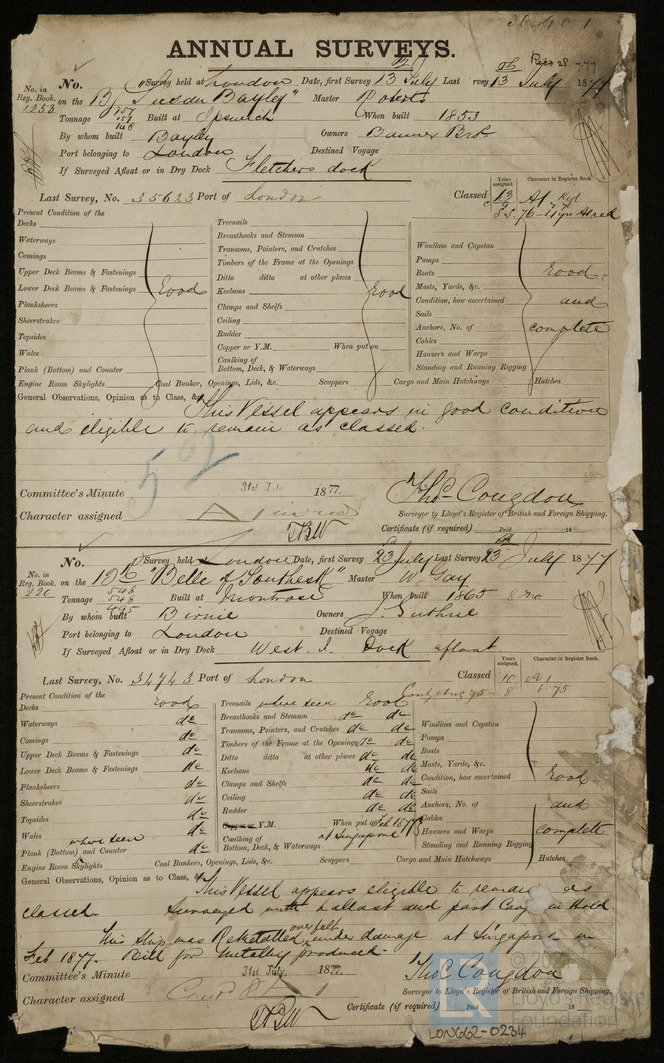 ANNUAL SURVEYS.
No. Survey held at London Date, first Survey 13th July Last Survey 13th July 1877
No. in Reg. Book. 1253 on the Bk "Susan Bayley" Master Roberts
Tonnage Built at Ipswich When built 1853
By whom built Bayly Owners Banner Bros
Port belonging to London Destined Voyage
If Surveyed Afloat or in Dry Dock Fletchers dock
Years assigned. Character in Register Book.
Last Survey, No. 35623 Port of London Classed 13 A1
SS. 76-4yrs
Present Condition of the
Decks
Waterways
Comings
Upper Deck Beams & Fastenings
Lower Deck Beams & Fastenings Good
Planksheers
Sheerstrakes
Topsides
Wales
Plank (Bottom) and Counter
Treenails
Breasthooks and Stemson
Transoms, Pointers, and Crutches
Timbers of the Frame at the Openings
Ditto ditto at other places
Keelsons Good
Clamps and Shelfs
Ceiling
Rudder
Copper or Y.M. When put on
Caulking of Bottom, Deck, & Waterways
Windlass and Capstan
Pumps
Boats Good
Masts, Yards, &c.
Condition, how ascertained and
Sails
Anchors, No. of complete
Cables
Hawsers and Warps
Standing and Running Rigging
Engine Room Skylights Coal Bunker, Openings, Lids, &c. Scuppers Cargo and Main Hatchways Hatches
General Observations, Opinion as to Class, &c. This Vessel appears in good condition
and eligible to remain as classed.
52
Committee's Minute 31st July 1877.
Character assigned
Thos. Congdon
Surveyor to Lloyd's Register of British and Foreign Shipping.
Certificate (if required) Paid 18
No. Survey held at London Date, first Survey 23 July Last Survey 23rd July 1877
No. in Reg. Book. 220 on the Bk "Belle of Southesk" Master W. Tay
Tonnage 548 Built at Montrose When built 1865
495
By whom built Birnie Owners J. Guthrie
Port belonging to London Destined Voyage
If Surveyed Afloat or in Dry Dock West I. Dock afloat
Years assigned. Character in Register Book.
Last Survey, No. 34743 Port of London Classed 10 A1
8 6.75
Present Condition of the
Decks Good
Waterways do
Comings do
Upper Deck Beams & Fastenings do
Lower Deck Beams & Fastenings do
Planksheers do
Sheerstrakes do
Topsides do
Wales do
Plank (Bottom) and Counter where seen do
Treenails where seen Good
Breasthooks and Stemson do do
Transoms, Pointers, and Crutches do do
Timbers of the Frame at the Openings do do
Ditto ditto at other places do do
Keelsons do do
Clamps and Shelfs do do
Ceiling do do
Rudder do do
Y.M. When put on Feb 1877
Caulking of Bottom, Deck, & Waterways at Singapore
Windlass and Capstan
Pumps
Boats
Masts, Yards, &c.
Condition, how ascertained Good
Sails
Anchors, No. of and
Cables
Hawsers and Warps complete
Standing and Running Rigging
Engine Room Skylights Coal Bunkers, Openings, Lids, &c. Scuppers Cargo and Main Hatchways Hatches
General Observations, Opinion as to Class, &c. This Vessel appears eligible to remain as
classed. Surveyed with ballast and part Cargo in Hold.
This Ship was Remetalled over felt under damage at Singapore in
Feb 1877. Bill for metalling produced.
Committee's Minute 31st July, 1877.
Character assigned
Thos. Congdon
Surveyor to Lloyd's Register of British and Foreign Shipping.
Certificate (if required) Paid 18
LON662-0234
Foundation